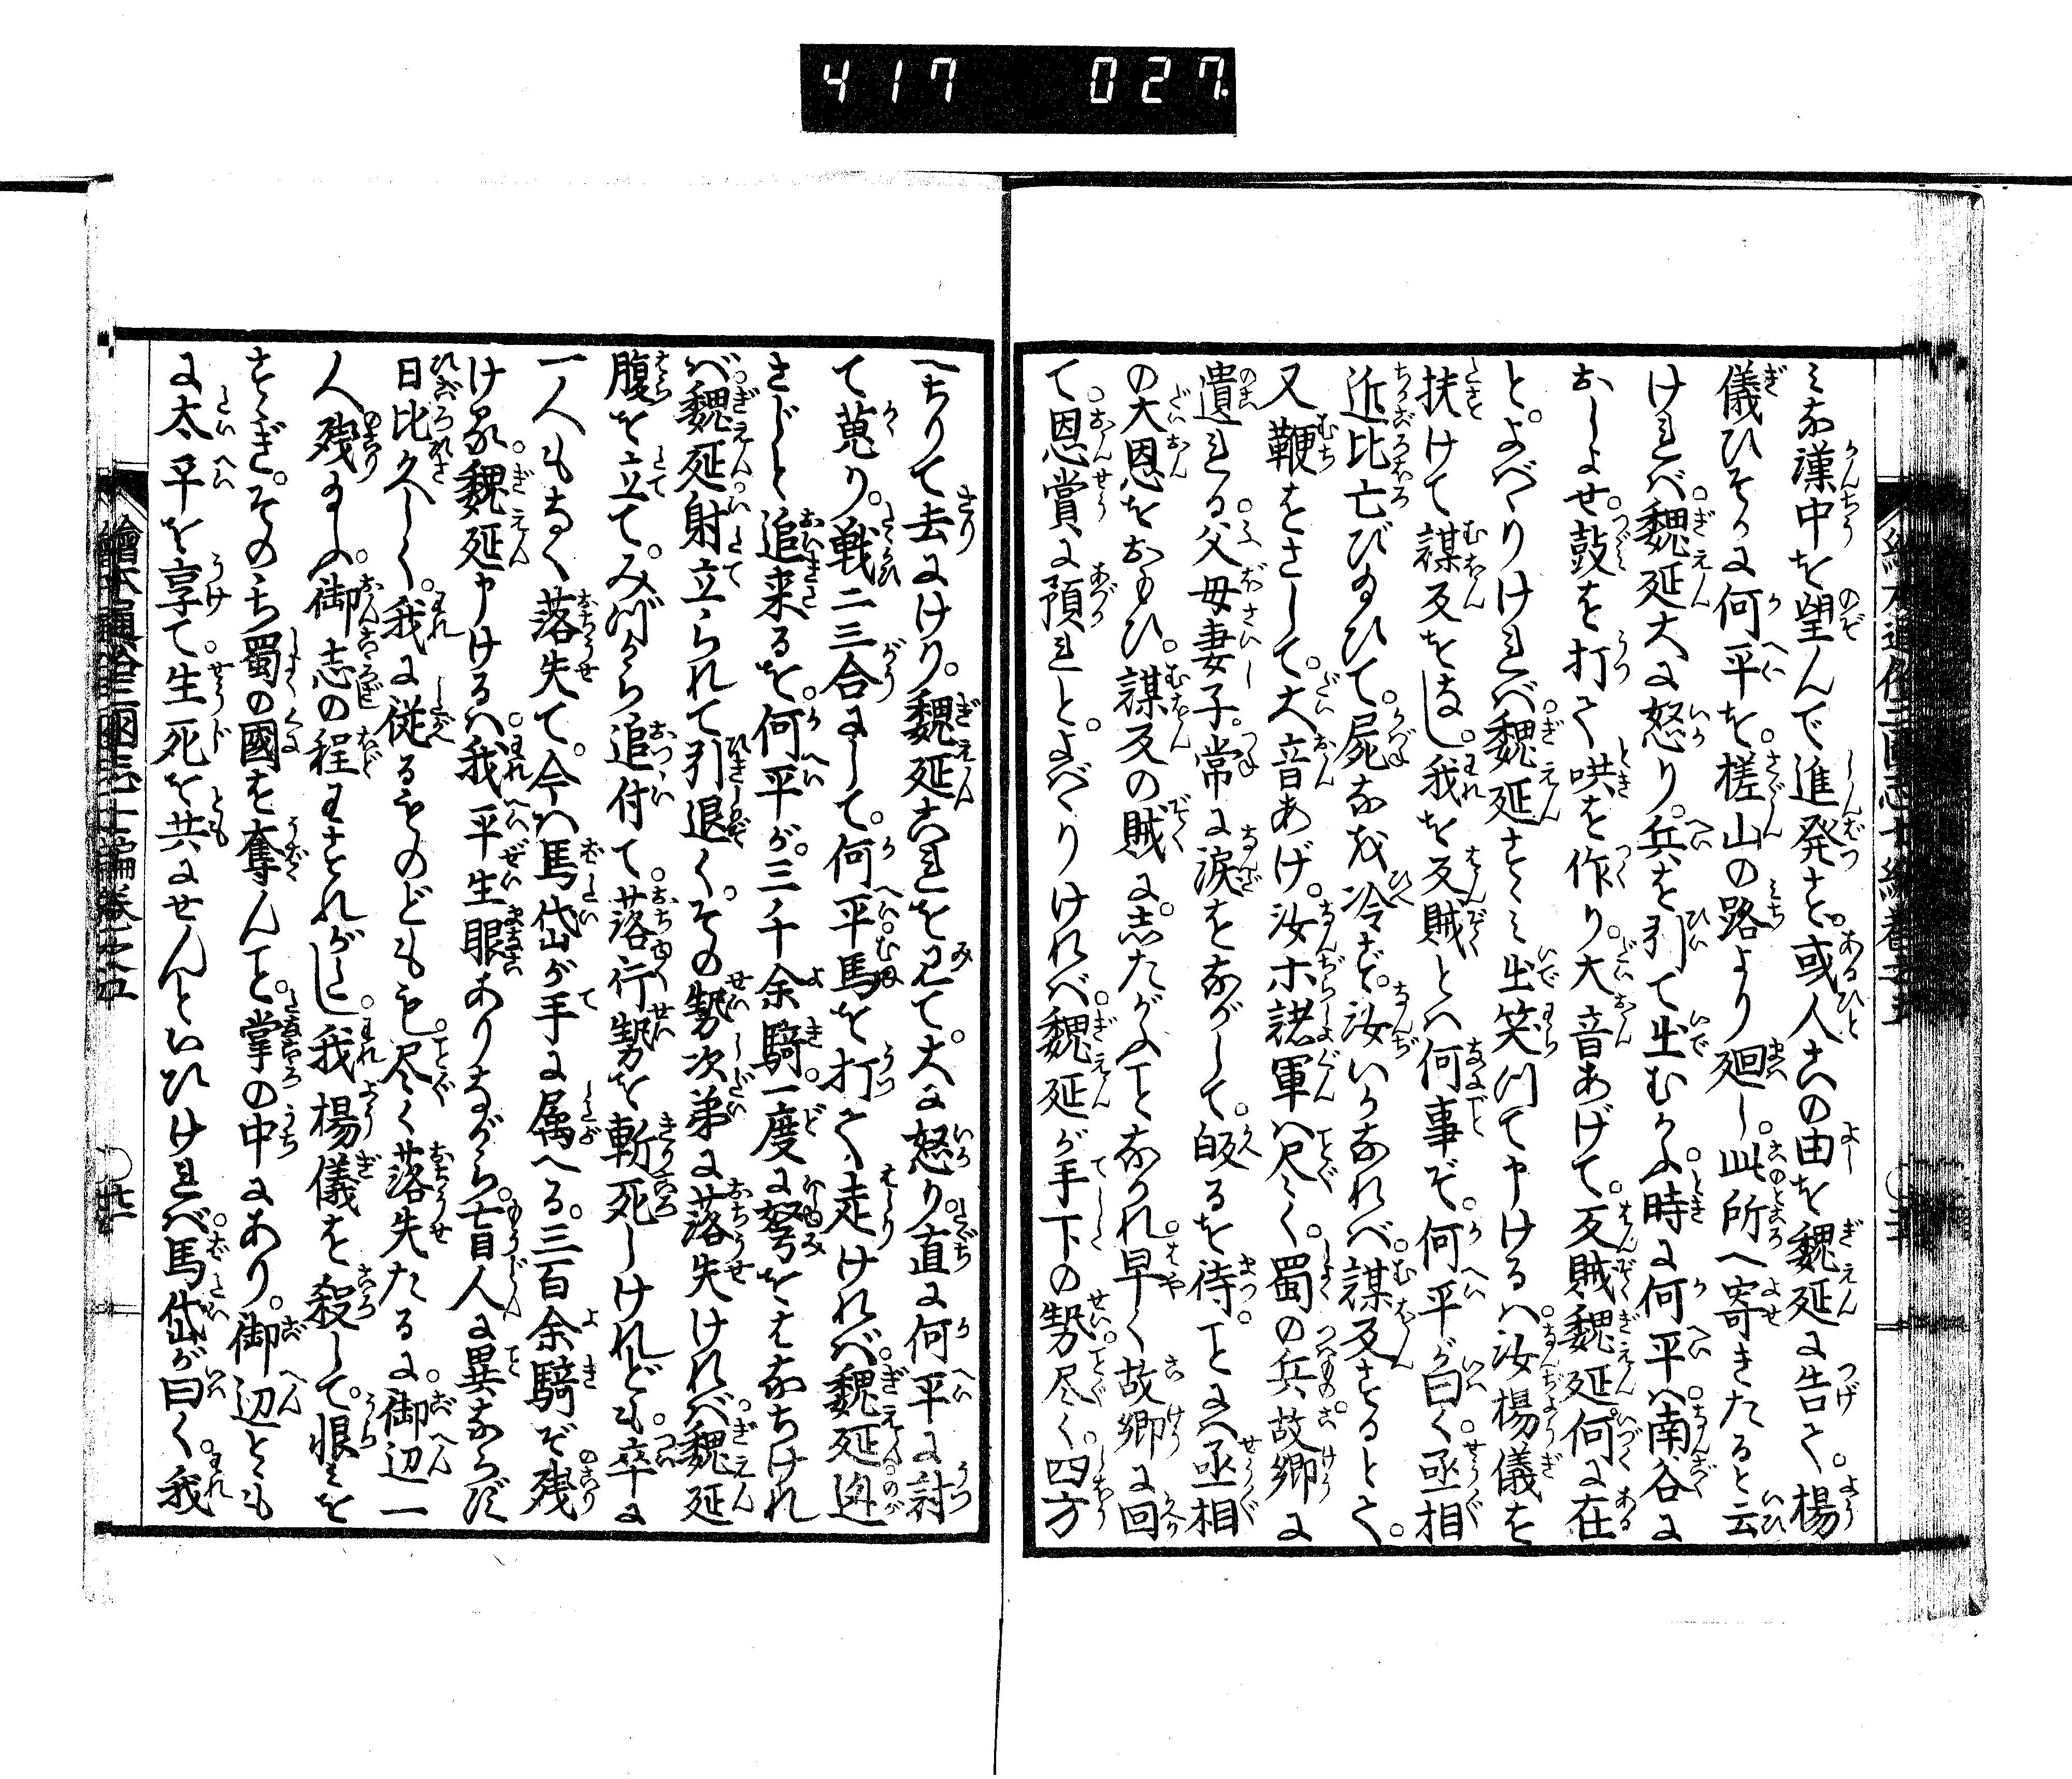 417 027.
ミな漢中を望んで進発す。或人此の由を魏延に告て。楊
儀ひそかに何平を。槎山の路より廻し。此所へ寄きたると云
ければ。魏延大に怒り。兵を引て出むかふ時に何平は。南谷に
おしよせ。鼓を打て哄を作り。大音あげて。反賊魏延何に在
と。よばゝりければ。魏延すゝミ出笑つて申けるは。汝楊儀を
扶けて謀反をなし。我を反賊とは何事ぞ。何平が曰く。丞相
近比亡びゐひて。屍なを冷ず。汝いかなれバ。謀反するとて。
又鞭をさして。大音あげ。汝ホ諸軍は尽く。蜀の兵。故郷に
遺せる。父母妻子。常に涙をながして。皈るを待。ことに丞相
の大恩をおもひ。謀反の賊に。志たがふことなかれ。早く故郷に回
て。恩賞に預れと。よばゝりけれバ。魏延が手下の勢。尽く。四方
へちりて去にけり。魏延これを見て。大に怒り。直に何平に討
て蒐り。戦二三合にして。何平馬を打て走けれバ。魏延。迯
さじと追来るを。何平が。三千余騎。一度に弩をはなちけれ
ば。魏延。射立られて引退く。その勢次弟に落失けれバ。魏延
腹を立て。みづから追付て。落行勢を斬死しけれども。卒に
一人もなく落失て。今は馬岱が手に属へる。三百余騎ぞ残
ける。魏延申けるは。我平生眼ありながら。盲人に異ならず
日比久しく。我に従るものども も。尽く落失たるに。御辺一
人残りふ。御志の程わすれがたし。我楊儀を殺して。恨ミを
すゝぎ。そのち蜀の國を奪んこと。掌の中にあり。御辺とも
に太平を享て。生死を共にせんといひければ。馬岱が曰く。我
繪本通俗三國志七編巻之五